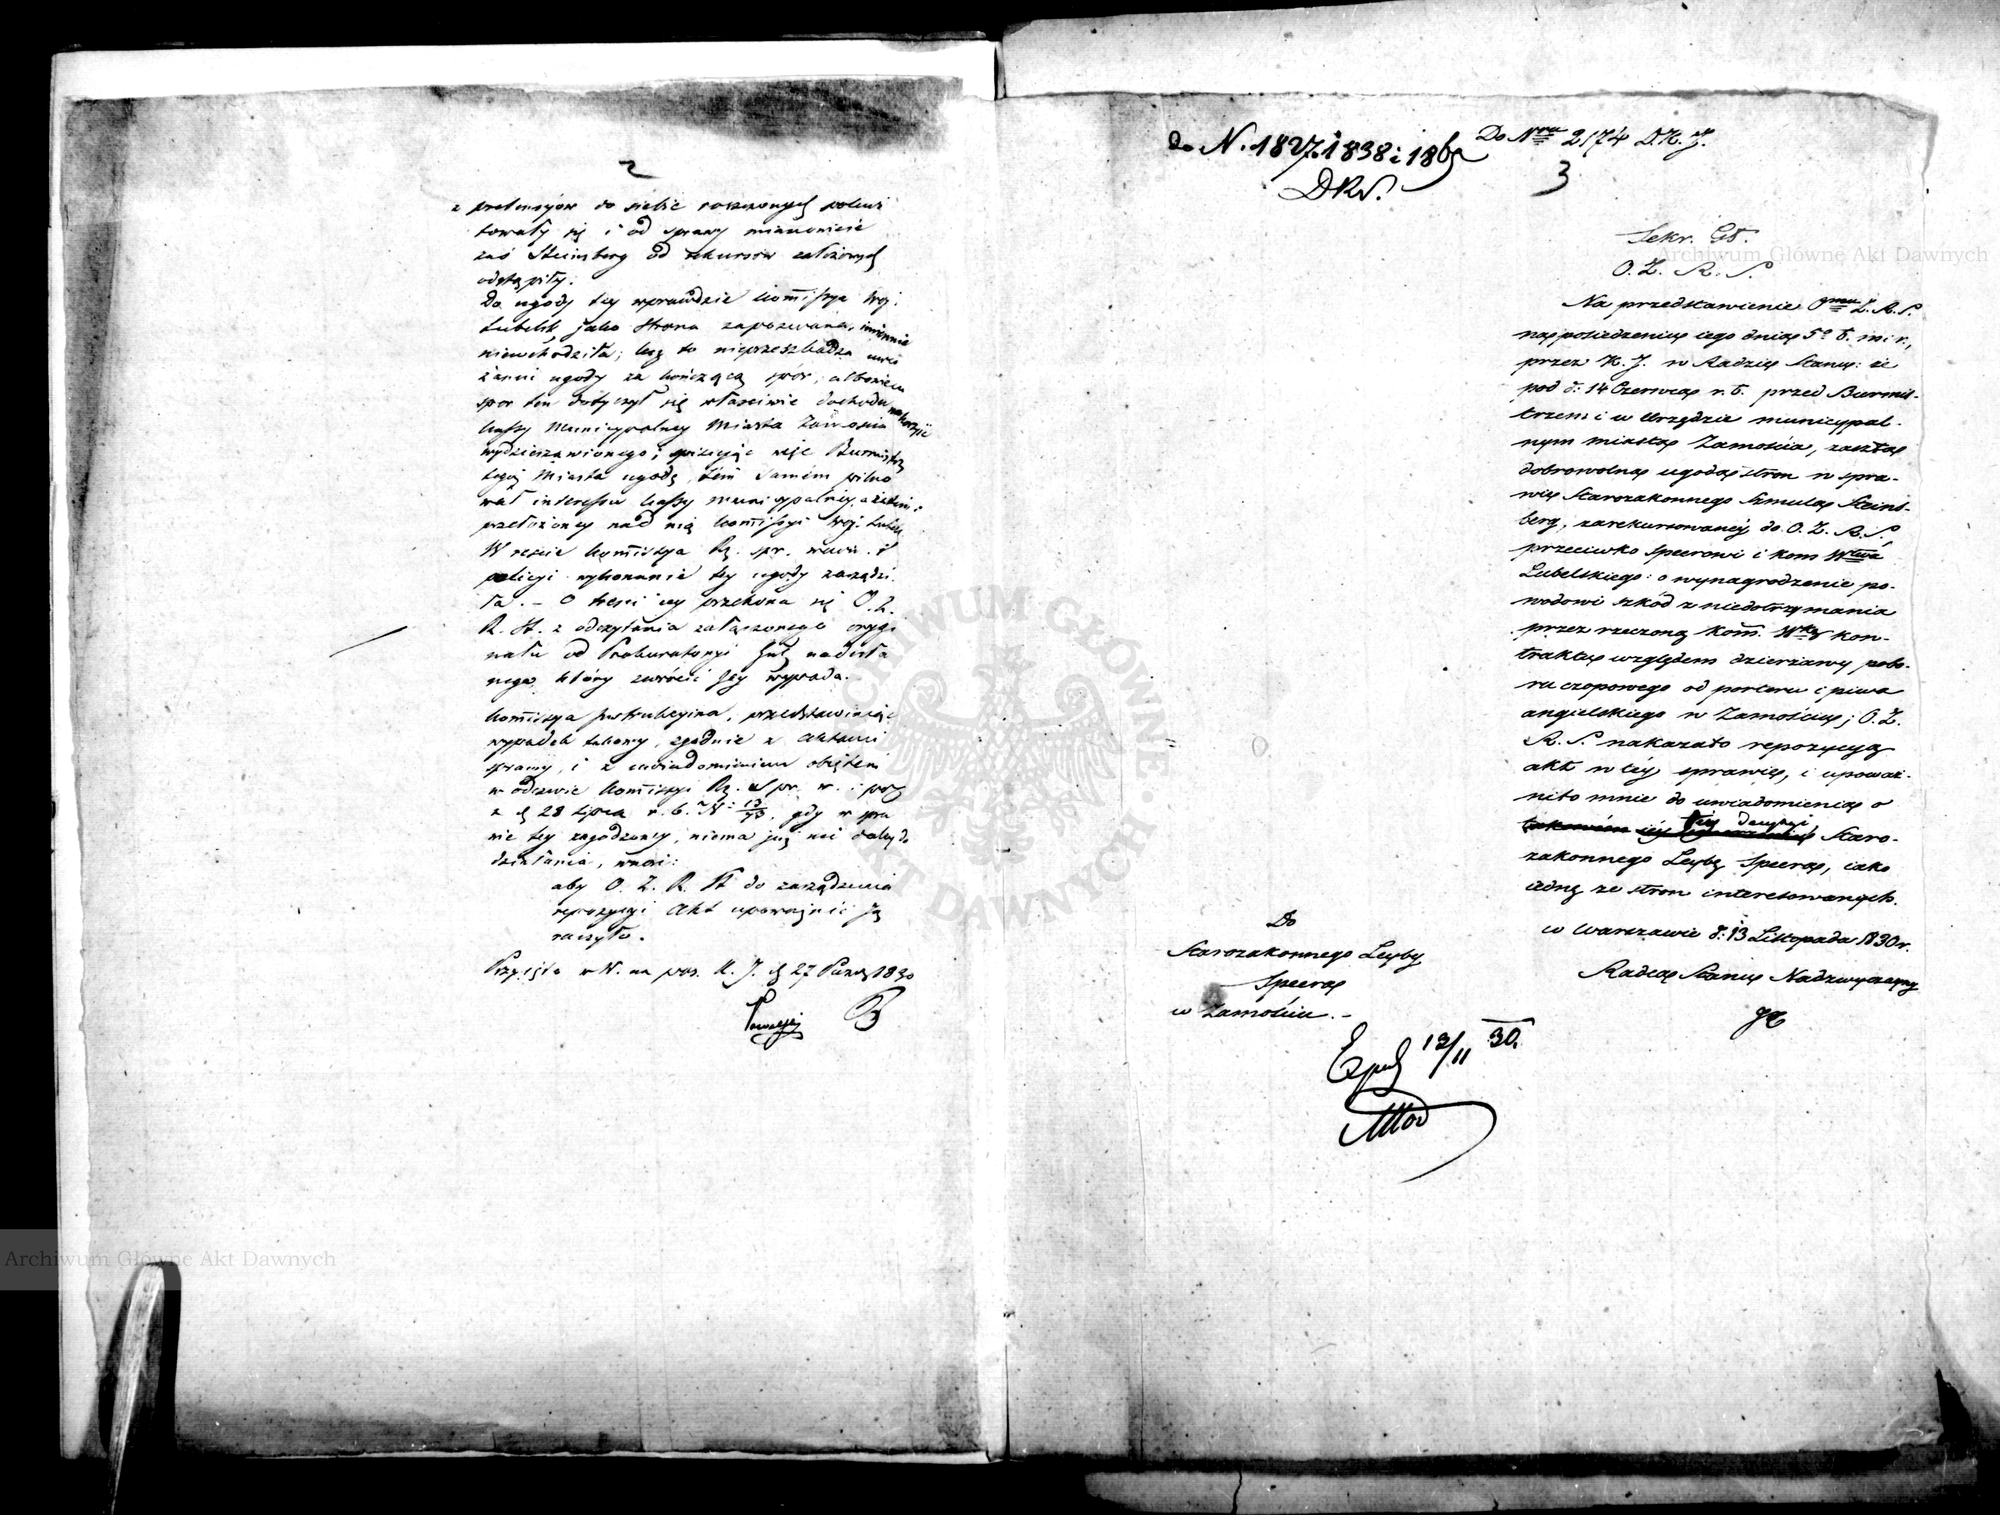 2
z pretensyów do siebie roszczonych pokwi
towały się i od sprawy mianowicie
zaś Steinsberg od rekursów założonych
odstąpiły.
Do ugody tey wprawdzie Kommissya Woj:
Lubelsk. jako strona zapozwana, imiennie
niewchodziła; lecz to nieprzeszkadza uwa
żaniu ugody za kończącą spór; albowiem
spor ten dotyczył się właściwie dochodu na korzyść
kassy Municypalney Miasta Zamościa
wydzierzawionego; przyjęcie więc Burmistrz
tegoż Miasta ugodę, tém samém pilno
wał interessu kassy municypalney, a
przełożoney nad nią Kommissyi Woj. Lubel.
W reście Kommissya Rz. spr. wewn. i
policyi wykonanie tey ugody zarządzi
ła. – O treści iey przekona się O. Z.
R. St. z odczytania załączonego orygi
nału od Prokuratoryi Jnł. nadesła
nego, który zwrócić Jey wypada.
Kommissya Jnstrukcyjna, przedstawiając
wypadek takowy, zgodnie z aktami
sprawy, i z uwiadomieniem objętém
w odezwie Kommissyi Rz. Spr. w. i pol.
z d 28 Lipca r. b. N: gdy w spra
wie tey zagodzoney, niema już nic dalej do
działania, wnosi:
aby O. Z. R. St do zarządzenia
repozycyi Akt upoważnić Ją
raczyło.
Przyjęto w N. na pos. K. J. d 27 Paźdz 1830
do N. 1827. i 1838 i 186
Do Nru 2174 D.K.J.
DRS.
3
Sekr. Gł.
O. Z. R. S.
Na przedstawienie Ogmu Z. R. S.
na posiedzeniu iego dnia 5º b. m: i r.,
przez K. J. w Radzie Stanu: że
pod d: 14 Czerwca r. b. przed Burmi-
trzem i w Urzędzie municypal-
nym miasta Zamościa, zaszła
dobrowolna ugoda stron w spra-
wie Starozakonnego Szmula Steins-
berg, zarekursowaney do O. Z. R. S.
przeciwko Speerowi i Kom Wdztwa
Lubelskiego: o wynagrodzenie po-
wodowi szkód z niedotrzymania
przez rzeczoną Kom. Wką kon-
traktu względem dzierzawy pobo-
ru czopowego od porteru i piwa
angielskiego w Zamościu; O. Z.
R. S. nakazało repozycyą
akt w téy sprawie, i upoważ-
niło mnie do uwiadomienia o
tey decyzyi Staro-
zakonnego Leyby Speera, iako
iedną ze stron interesowanych.
w Warszawie d: 13 Listopada 1830 r.
Radca Stanu Nadzwyczayny
Do
Starozakonnego Leyby
Speera
w Zamościu. –
Exped 13/11 30.
Archiwum Główne Akt Dawnych
Archiwum Główne Akt Dawnych
Archiwum Główne Akt Dawnych
ARCHIWUM GŁÓWNE AKT DAWNYCH